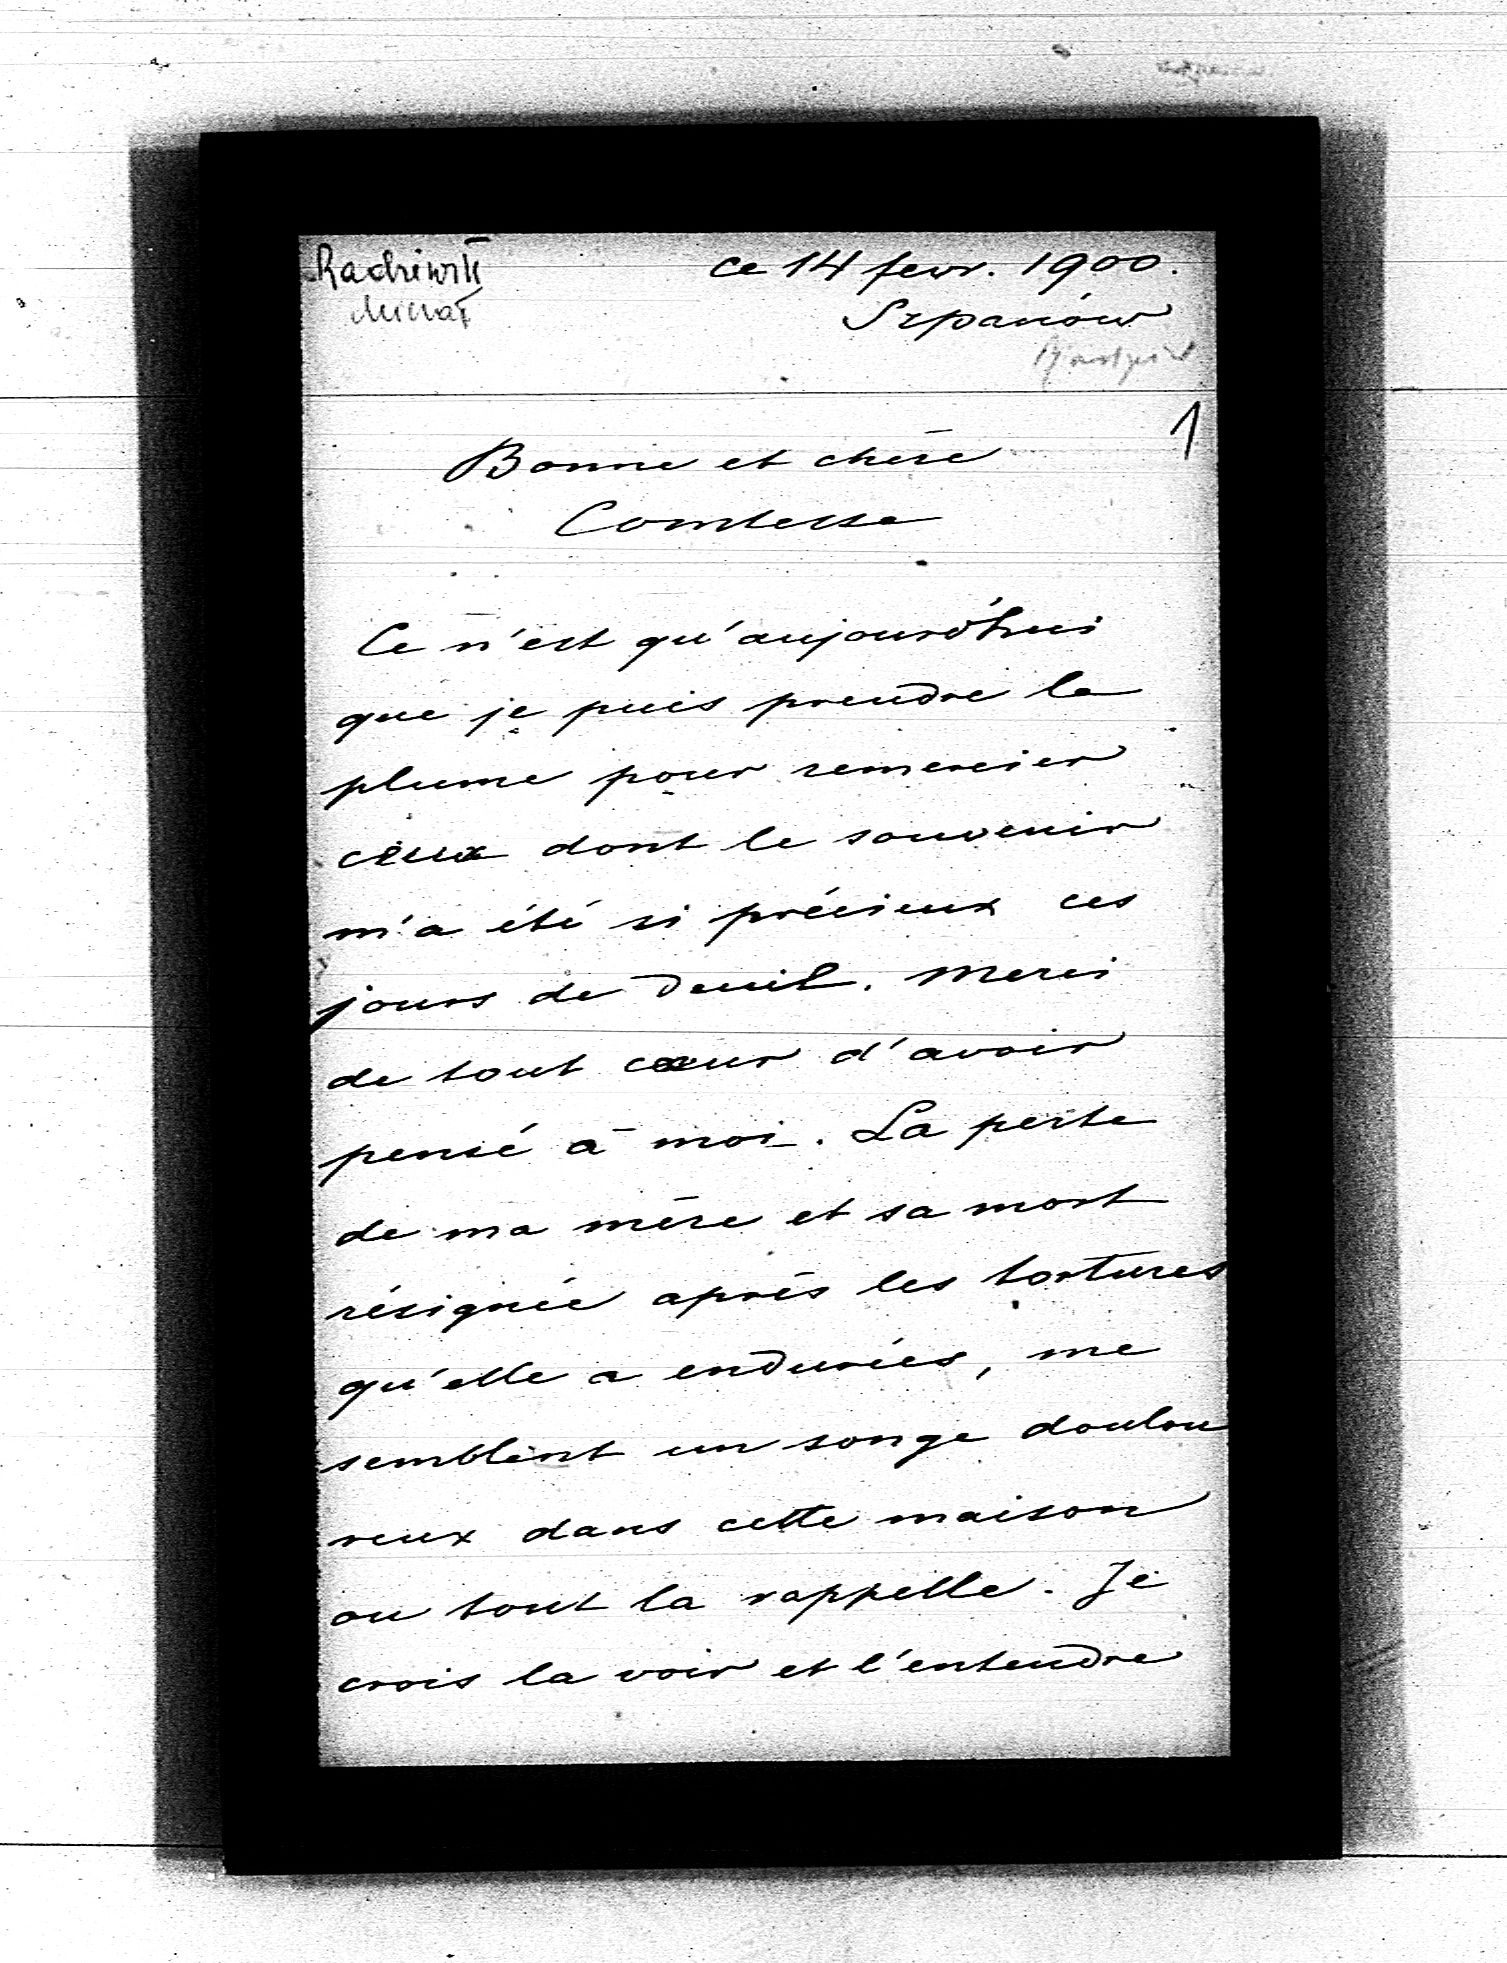 Radziwiłł
Michał
ce 14 fevr. 1900.
Szpanów
1
Bonne et chère
Comtesse
Ce n'est qu'aujourd'hui
que je puis prendre la
plume pour remercier
ceux dont le souvenir
m'a été si précieux ces
jours de deuil. Merci
de tout cœur d'avoir
pensé à moi. La perte
de ma mère et sa mort
résignée après les tortures
qu'elle a endurées, me
semblent un songe doulou
reux dans cette maison
ou tout la rappelle. Je
crois la voir et l'entendre